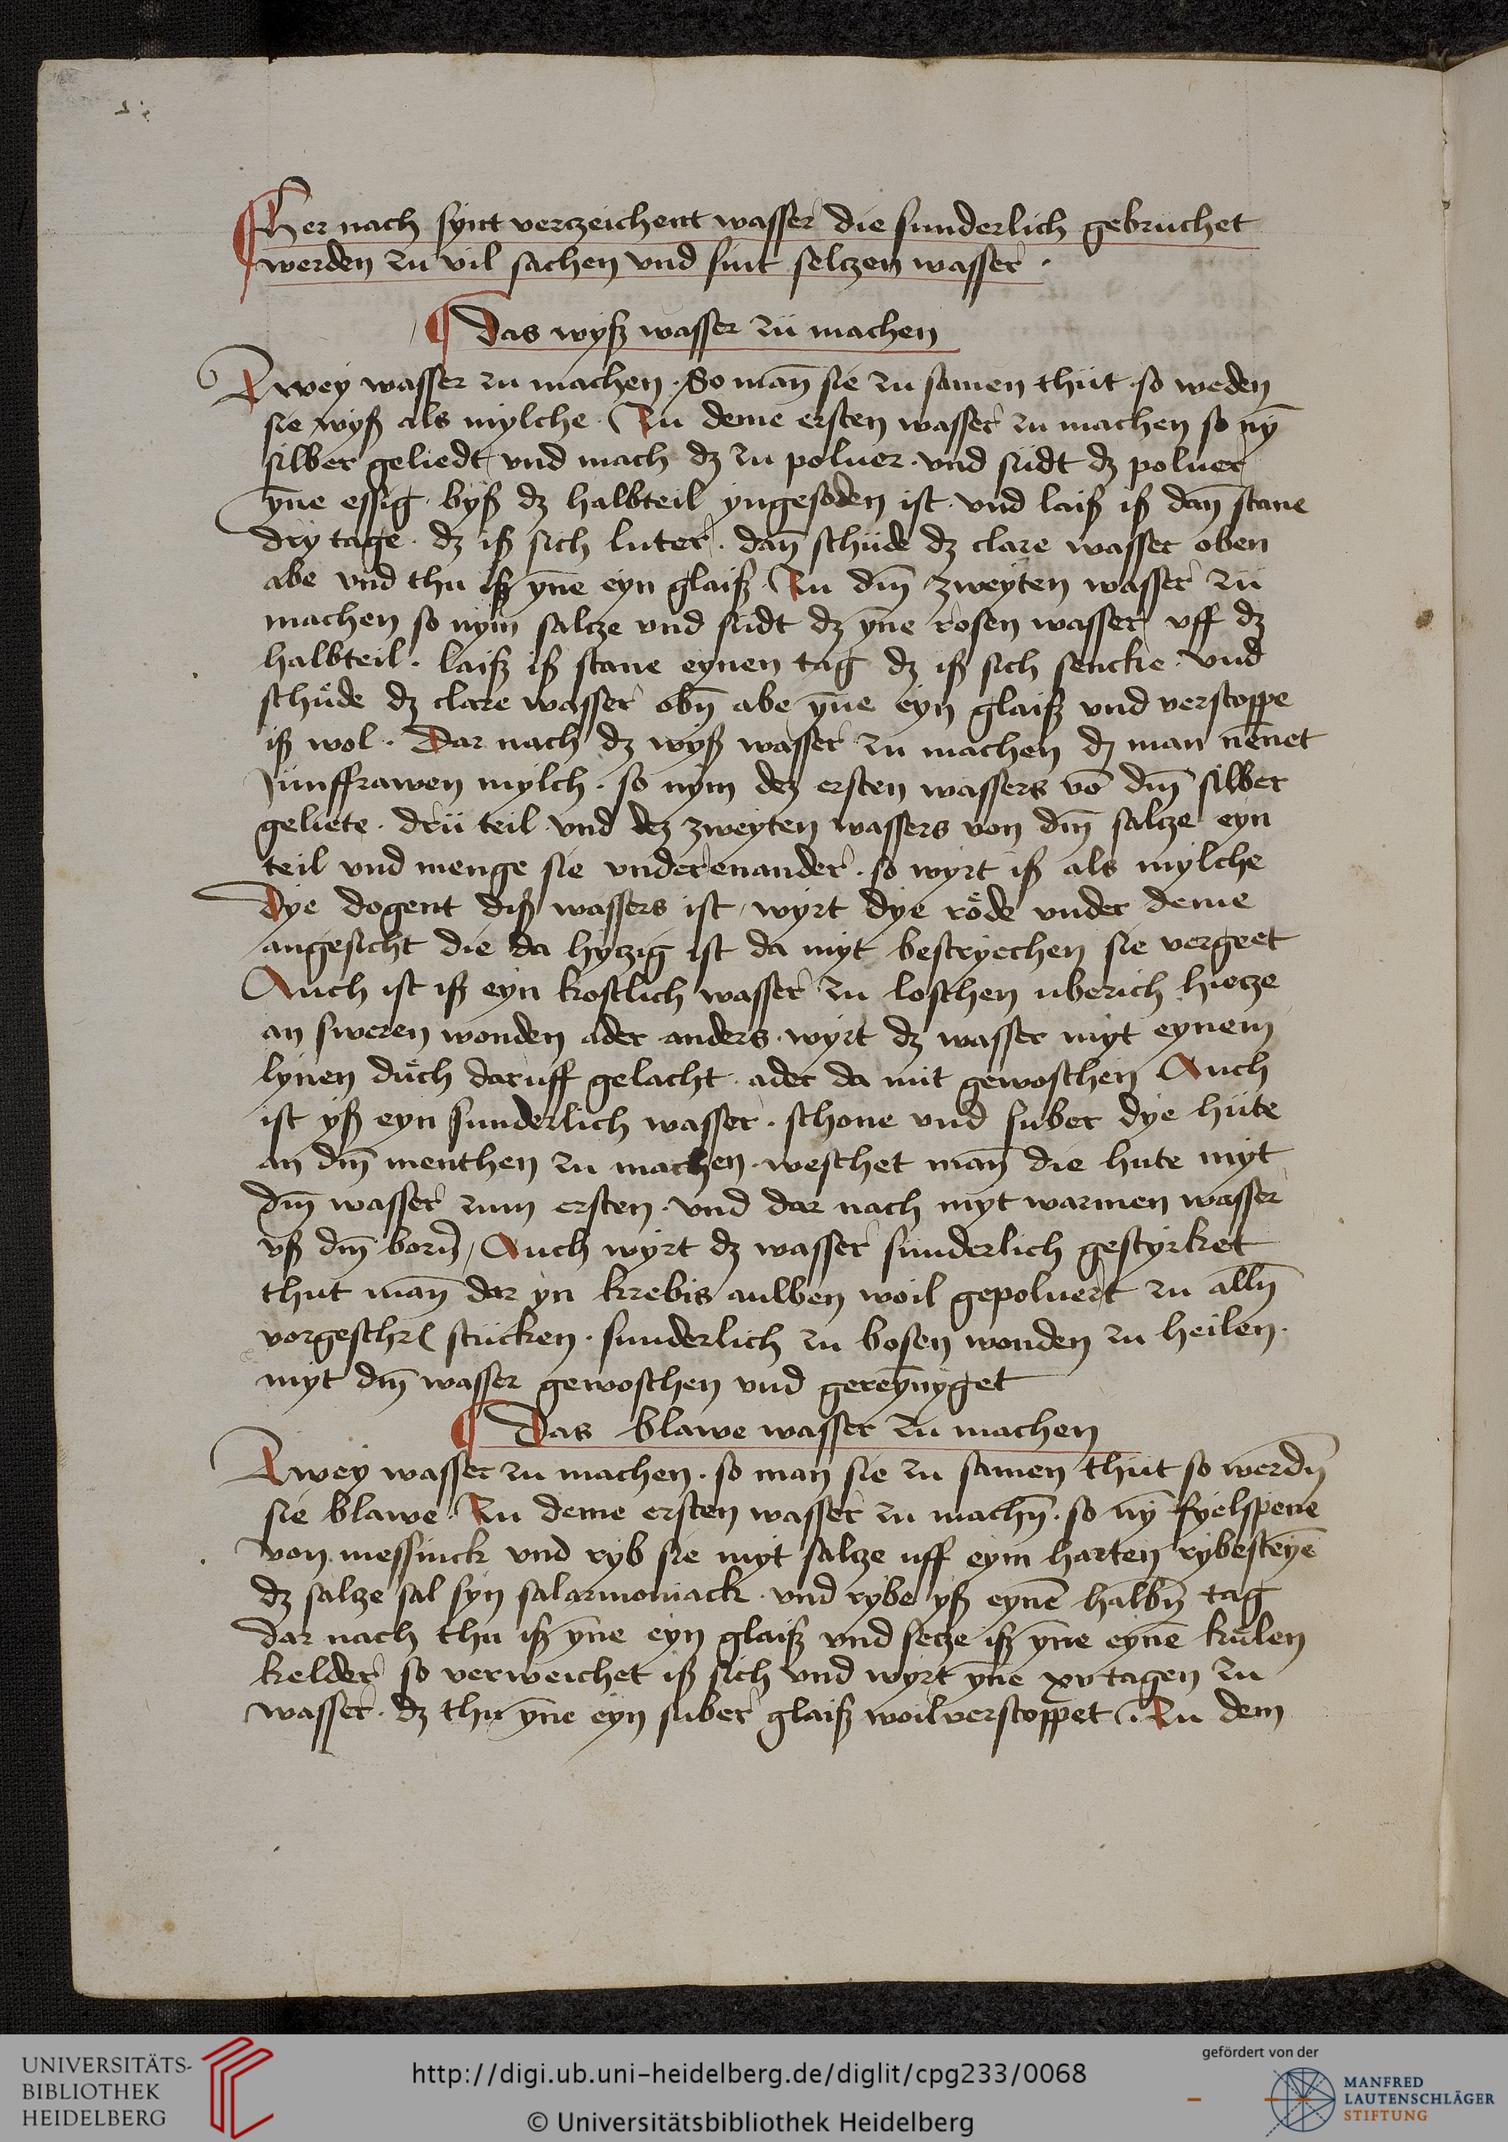 Her nach synt verczeichent wasser die sunderlich gebruchet
werden zu vil sachen vnd sint selczen wasser ·
Das wyß wasser zü machen
Zwey wasser zu machen · So man̄ sie zu samen thüt · so weden
sie wyß als mylche · Zu deme ersten wasser zu machen so ny̅
silber geliedt vnd mach dz zu poluer · vnd südt dz poluer
yn̄e essig · byß dz halbteil yngesoden ist · vnd laiß iß dan̄ stane
dry tage · dz iß sich luter · dan̄ schüde dz clare wasser oben
abe vnd thu iß yn̄e eyn glaiß Zu dm̄ zweyten wasser zü
machen so nym salcze vnd südt dz yn̄e rosen wasser vff dz
halbteil · laiß iß stane eynen tag dz iß sich sencke · vnd
schüde dz clare wasser obn̄ abe yn̄e eyn glaiß vnd verstoppe
iß wol · Dar nach dz wyß wasser zu machen dz man nēnet
Junffrawen mylch · so nym dez ersten wassers vō dm̄ silber
geliete · drü teil vnd dez zweyten wassers von dm̄ salcze eyn
teil vnd menge sie vnderenander · so wyrt iß als mylche
Dye dogent diß wassers ist / wyrt dye röde vnder deme
angesicht die da hyczig ist da myt bestryechen sie vergeet
Auch ist iß eyn kostlich wasser zu loschen uberich hiecze
an sweren wonden ader anders · wyrt dz wasser myt eynem
lynen düch daruff gelacht · ader da mit gewoschen Auch
ist yß eyn sunderlich wasser · schone vnd suber dye hüte
an dm̄ menschen zu machen · weschet man̄ die hute myt
dm̄ wasser zum ersten · vnd dar nach myt warmen wasser
vß dm̄ born̄ / Auch wyrt dz wasser sunderlich gestyrket
thut man̄ dar yn krebis aulben woil gepoluert zu alln̄
vorgeschr stücken · sunderlich zu bosen wonden zu heilen ·
myt dm̄ wasser gewoschen vnd gereynyget
Das blawe wasser zu machen
Zwey wasser zu machen · so man sie zu samen thüt so werdn̄
sie blawe Zu deme ersten wasser zu machn̄ · so ny̅ fyelspene
von messinck vnd ryb sie myt salcze uff eym harten rybesteyē
dz salcze sal syn salarmoniack · vnd rybe yß eynē halbn̄ tag
dar nach thu iß yn̄e eyn glaiß vnd secze iß yn̄e eynē kulen
kelder so verweichet iß sich vnd wyrt yn̄e xv tagen zu
wasser · dz thu yn̄e eyn suber glaiß woil verstoppet Zu dem
UNIVERSITÄTS-
BIBLIOTHEK
HEIDELBERG
http://digi.ub.uni-heidelberg.de/diglit/cpg233/0068
© Universitätsbibliothek Heidelberg
gefördert von der
MANFRED
LAUTENSCHLÄGER
STIFTUNG